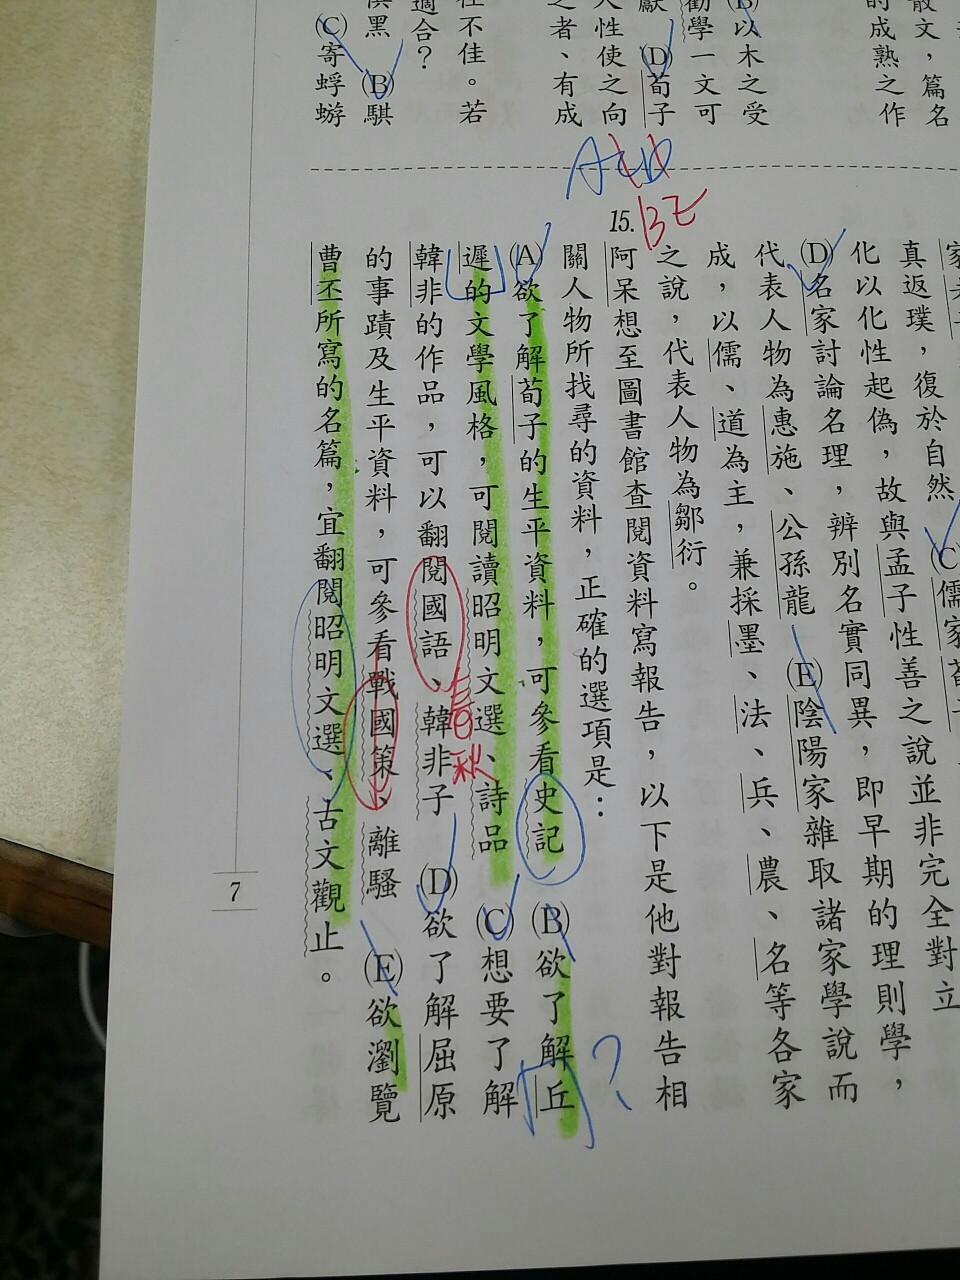 散文，篇名
的成熟之作
(B)以木之受
勸學一文可
獻
(D)荀子
人性使之向
之者、有成
性不佳。若
適合？
(B)騏
(C)寄蜉蝣
真返璞，復於自然
(C)儒家
化以化性起偽，故與孟子性善之說並非完全對立
(D)名家討論名理，辨別名實同異，即早期的理則學，
代表人物為惠施、公孫龍 (E)陰陽家雜取諸家學說而
成，以儒、道為主，兼採墨、法、兵、農、名等各家
之說，代表人物為鄒衍。
ACD
BE
15.
阿呆想至圖書館查閱資料寫報告，以下是他對報告相
關人物所找尋的資料，正確的選項是：
(A)欲了解荀子的生平資料，可參看史記 (B)欲了解丘
遲的文學風格，可閱讀昭明文選、詩品 (C)想要了解
韓非的作品，可以翻閱國語、韓非子 (D)欲了解屈原
的事蹟及生平資料，可參看戰國策、離騷 (E)欲瀏覽
曹丕所寫的名篇，宜翻閱昭明文選、古文觀止。
春秋
？
7